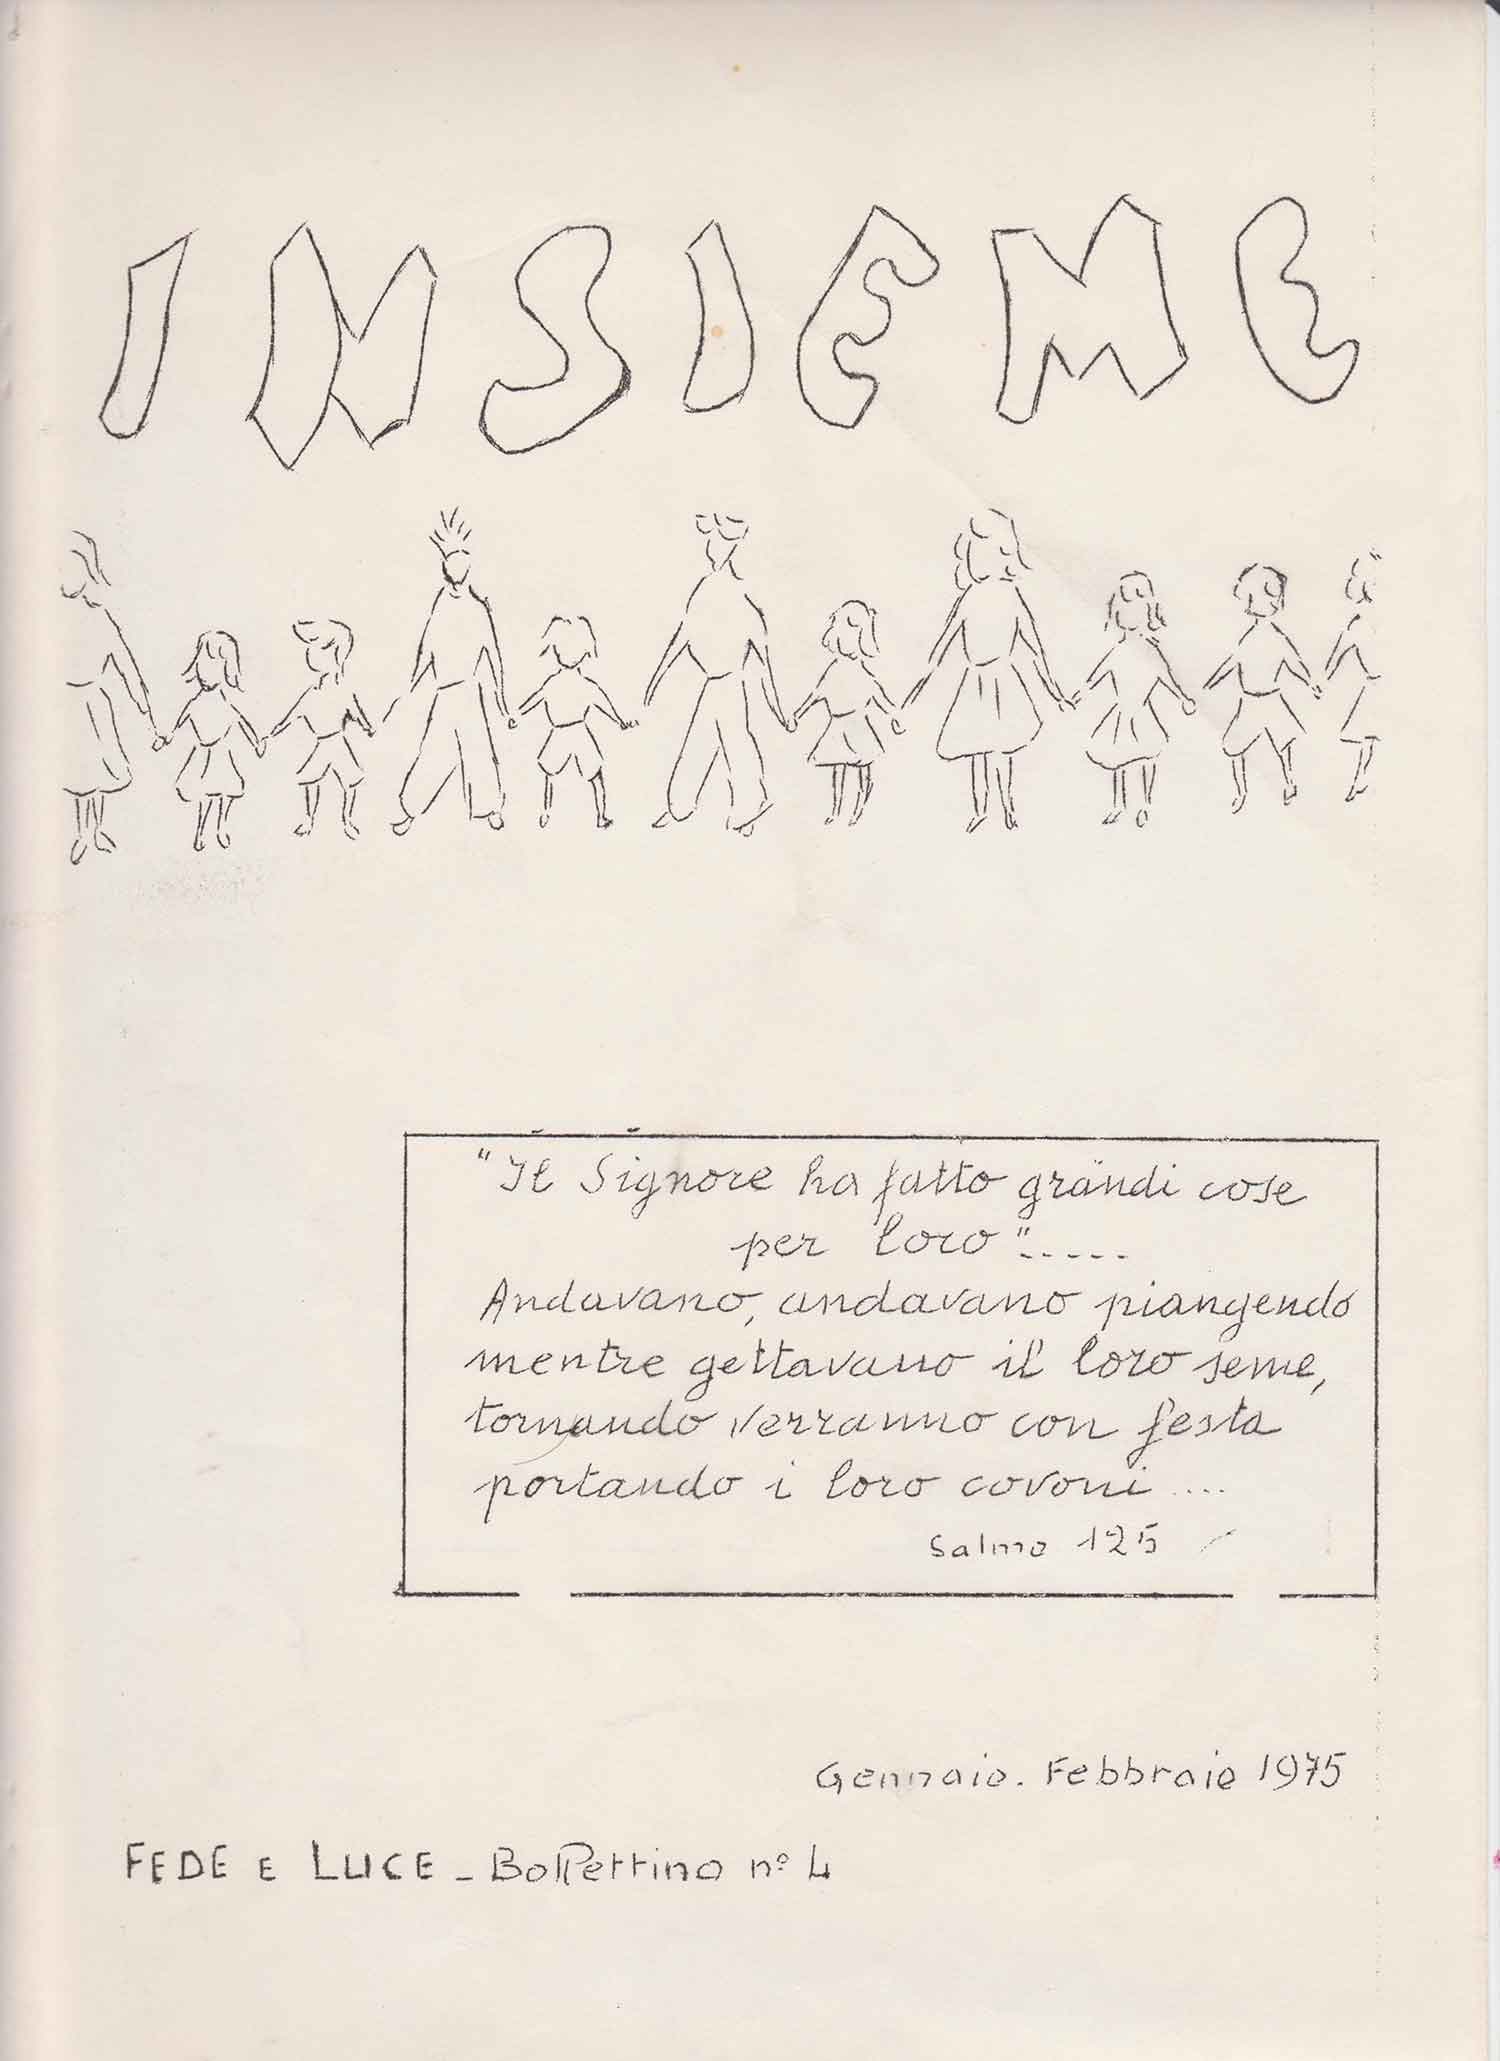 INSIEME
"Il Signore ha fatto grandi cose
per loro".....
Andavano, andavano piangendo
mentre gettavano il loro seme,
tornando verranno con festa
portando i loro covoni ....
Salmo 125
Gennaio. Febbraio 1975
FEDE E LUCE - Bollettino n° 4